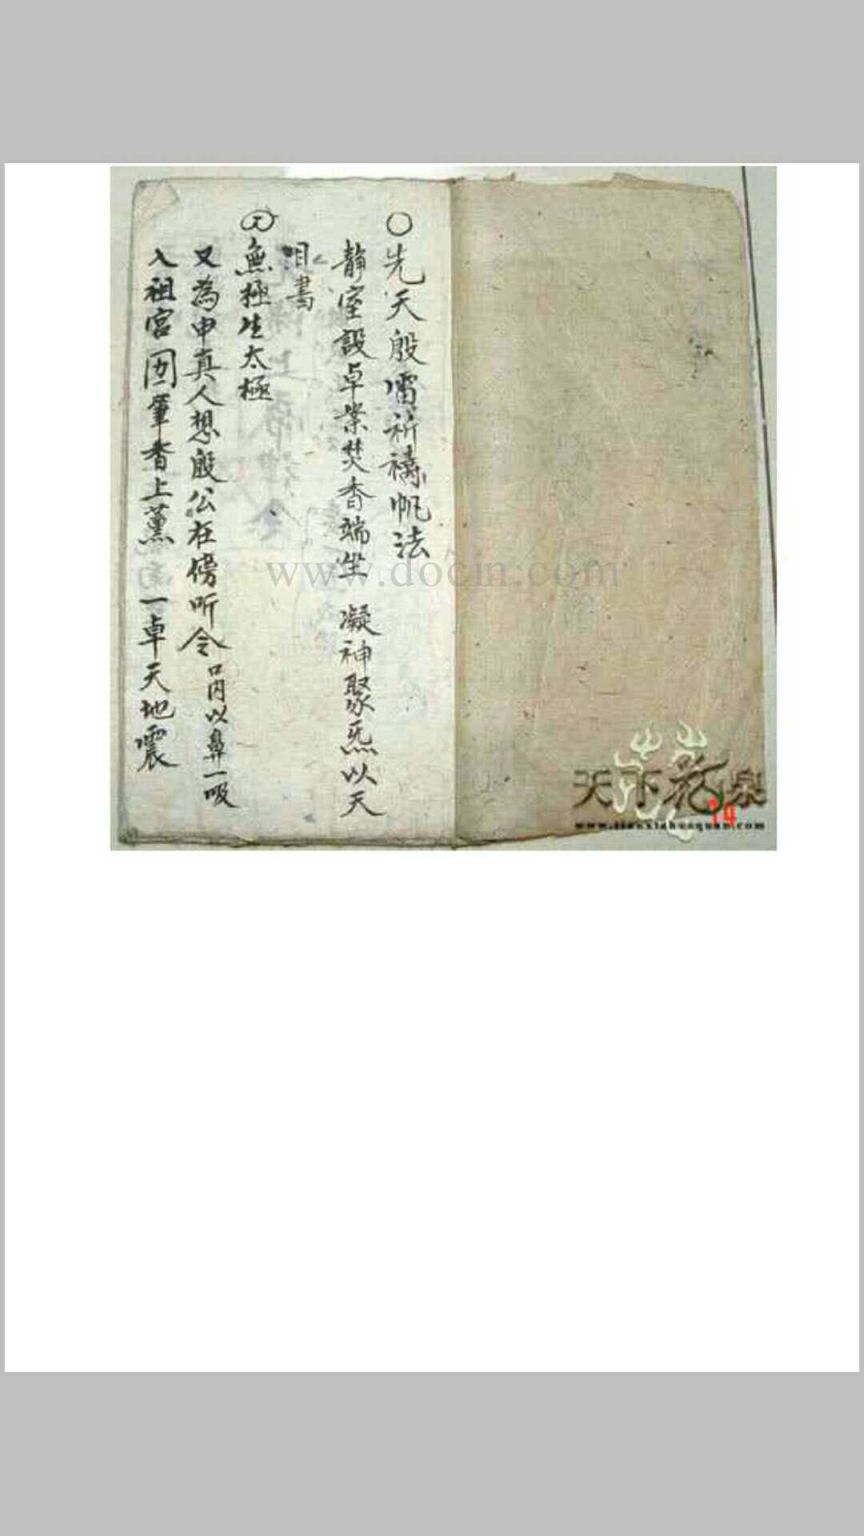 ○先天殷雷祈禱帆法
靜室設卓案焚香端坐 凝神聚炁以天
目書
無極生太極
又為申真人想殷公在傍听令 口內以鼻一吸
入祖宮 筆香上薰 一卓天地震
www.docin.com
天下花泉
www.tianxiahuaquan.com
14